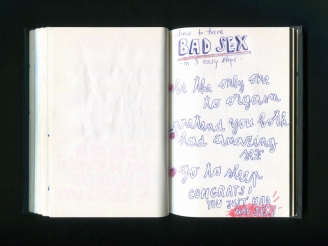 how to have
BAD SEX
in 3 easy steps:
be the only one
to orgasm
pretend you both
had amazing
sex
go to sleep
CONGRATS!
YOU JUST HAD
BAD SEX!